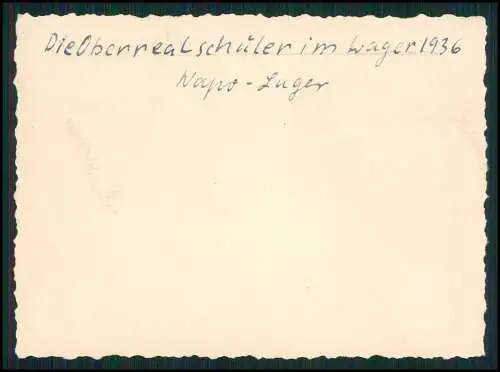 Die Oberrealschüler im Lager 1936
Napo - Lager